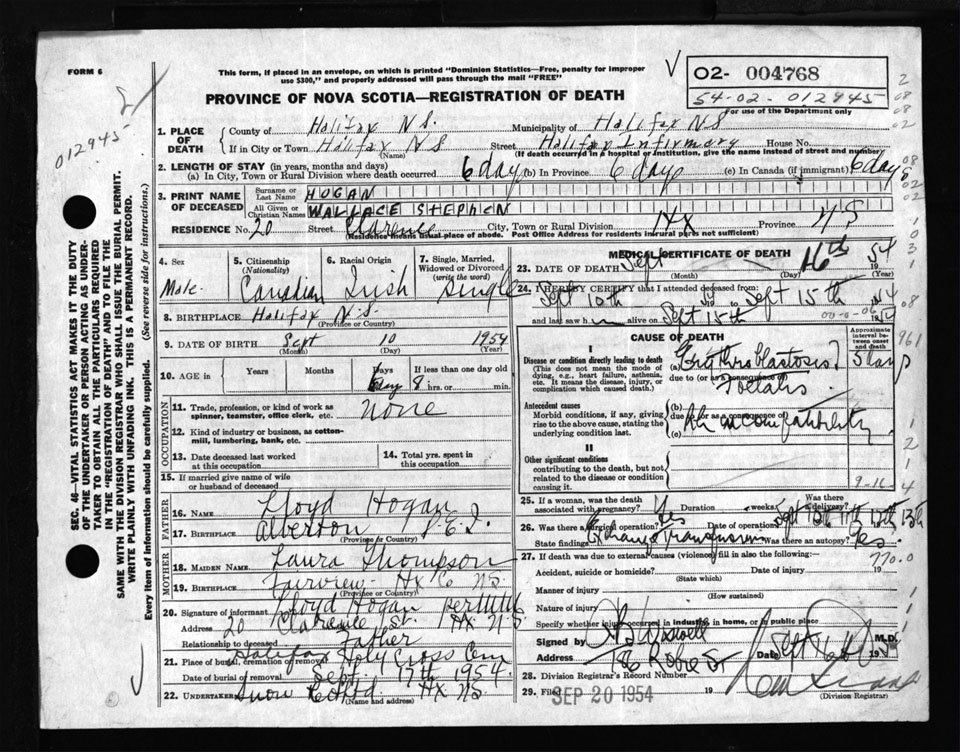 FORM 6
This form, if placed in an envelope, on which is printed "Dominion Statistics—Free, penalty for improper
use $300," and properly addressed will pass through the mail "FREE"
PROVINCE OF NOVA SCOTIA—REGISTRATION OF DEATH
02- 004768
54-02- 012945
For use of the Department only
012945
1. PLACE OF DEATH
County of Halifax N S. Municipality of Halifax N S
If in City or Town Halifax N S Street Halifax Infirmary House No.
(Name) (If death occurred in a hospital or institution, give the name instead of street and number)
2. LENGTH OF STAY (in years, months and days)
(a) In City, Town or Rural Division where death occurred 6 days (b) In Province 6 days (c) In Canada (if immigrant) 6 days
3. PRINT NAME OF DECEASED
Surname or Last Name HOGAN
All Given or Christian Names WALLACE STEPHEN
RESIDENCE No. 20 Street Clarence City, Town or Rural Division HX Province N S
(Residence means usual place of abode. Post Office Address for residents in rural parts not sufficient)
4. Sex Male
5. Citizenship (Nationality) Canadian
6. Racial Origin Irish
7. Single, Married, Widowed or Divorced (write the word) Single
8. BIRTHPLACE Halifax N.S.
(Province or Country)
9. DATE OF BIRTH Sept 10 1954
(Month) (Day) (Year)
10. AGE in Years Months Days If less than one day old
6 days 8 hrs. or min.
OCCUPATION
11. Trade, profession or kind of work as spinner, teamster, office clerk, etc. None
12. Kind of industry or business, as cotton-mill, lumbering, bank, etc.
13. Date deceased last worked at this occupation
14. Total yrs. spent in this occupation
15. If married give name of wife or husband of deceased
FATHER
16. NAME Lloyd Hogan
17. BIRTHPLACE Alberton P.E.I.
(Province or Country)
MOTHER
18. MAIDEN NAME Laura Thompson
19. BIRTHPLACE Fairview Hx Co NS.
(Province or Country)
20. Signature of informant Lloyd Hogan
Address 20 Clarence St. HX N S
Relationship to deceased Father
21. Place of burial, cremation or removal Halifax Holy Cross Cem
Date of burial or removal Sept. 17th 1954.
22. Undertaker Snow & Co Ltd. HX NS
(Name and address)
MEDICAL CERTIFICATE OF DEATH
23. DATE OF DEATH Sept 16th 1954
(Month) (Day) (Year)
24. I HEREBY CERTIFY that I attended deceased from:
Sept 10th 1954 to Sept 15th 1954
and last saw h im alive on Sept 15th 1954
CAUSE OF DEATH
Approximate interval between onset and death
I
Disease or condition directly leading to death
(This does not mean the mode of dying, e.g., heart failure, asthenia, etc. It means the disease, injury, or complication which caused death.)
(a) Erythroblastosis Foetalis 5 days
due to (or as a consequence of)
Antecedent causes
Morbid conditions, if any, giving rise to the above cause, stating the underlying condition last.
(b)
due to (or as a consequence of)
(c) Rh incompatibility
II
Other significant conditions
contributing to the death, but not related to the disease or condition causing it.
9-16
25. If a woman, was the death associated with pregnancy? Duration weeks? Was there a delivery?
26. Was there a surgical operation? Yes Date of operation Sept
State findings Exchange Transfusion Was there an autopsy? Yes.
27. If death was due to external causes (violence) fill in also the following:—
770.0
Accident, suicide or homicide? Date of injury 19
(State which)
Manner of injury
(How sustained)
Nature of injury
Specify whether injury occurred in industry, in home, or in public place
Signed by M.D.
Address 186 Robie St Date Sept 16
28. Division Registrar's Record Number
29. Filed SEP 20 1954 19
(Division Registrar)
SEC. 46—VITAL STATISTICS ACT MAKES IT THE DUTY
OF THE UNDERTAKER OR PERSON ACTING AS UNDERTAKER
TO OBTAIN ALL THE PARTICULARS REQUIRED
IN THE "REGISTRATION OF DEATH" AND TO FILE THE
SAME WITH THE DIVISION REGISTRAR WHO SHALL ISSUE THE BURIAL PERMIT.
WRITE PLAINLY WITH UNFADING INK. THIS IS A PERMANENT RECORD.
Every item of information should be carefully supplied. (See reverse side for instructions.)